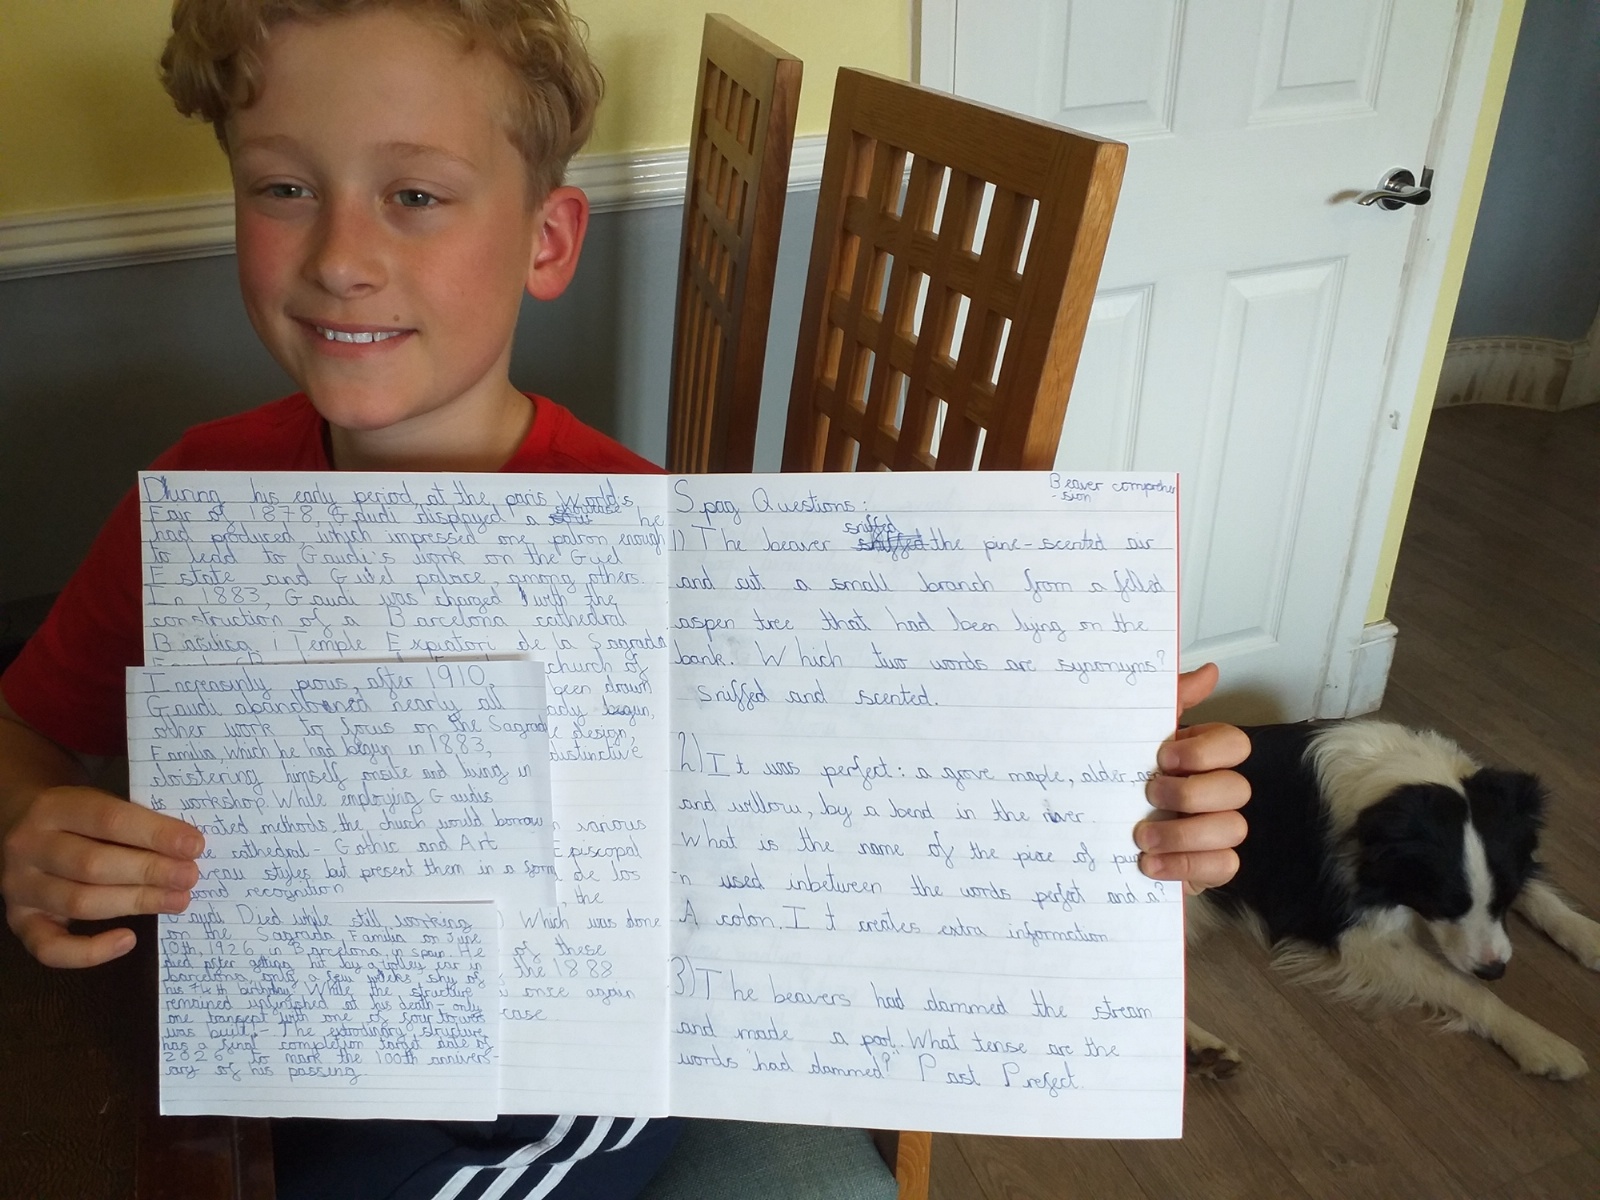 During his early period, at the paris World's
Fair of 1878, Gaudi displayed a showcase he
had produced, which impressed one patron enough
to lead to Gaudi's work on the Guel
Estate and Guel palace, among others.
In 1883, Gaudi was charged with the
construction of a Barcelona cathedral
Basilica i Temple Expiatori de la Sagrada
church of
been drawn
ady begun,
e design,
distinctive
various
Episcopal
de los
, the
Which was done
of these
the 1888
once again
case
Increasinly pious, after 1910,
Gaudi abandoned nearly all
other work to focus on the Sagrada
Familia, which he had begun in 1883,
cloistering himself onsite and living in
its workshop. While employing Gaudis
brated methods, the church would borrow
cathedral - Gothic and Art
veau styles but present them in a form
yond recognition
Gaudi Died while still working
on the Sagrada Familia on June
10th, 1926, in Barcelona, in spain. He
died after getting hit by a trolley car in
barcelona, only a few weeks shy of
his 74th birthday. While the structure
remained unfinished at his death - only
one transept with one of four towers
was built - The extrodinary structure
has a final completion target date of
2026 to mark the 100th annivers-
ary of his passing.
Beaver comprehen
-sion
Spag Questions:
1) The beaver sniffed the pine-scented air
and cut a small branch from a felled
aspen tree that had been lying on the
bank. Which two words are synonyms?
sniffed and scented.
2) It was perfect: a grove maple, alder, as
and willow, by a bend in the river.
What is the name of the piece of pu
n used inbetween the words perfect and a?
A colon. It creates extra information
3) The beavers had dammed the stream
and made a pool. What tense are the
words "had dammed?" Past Prefect.